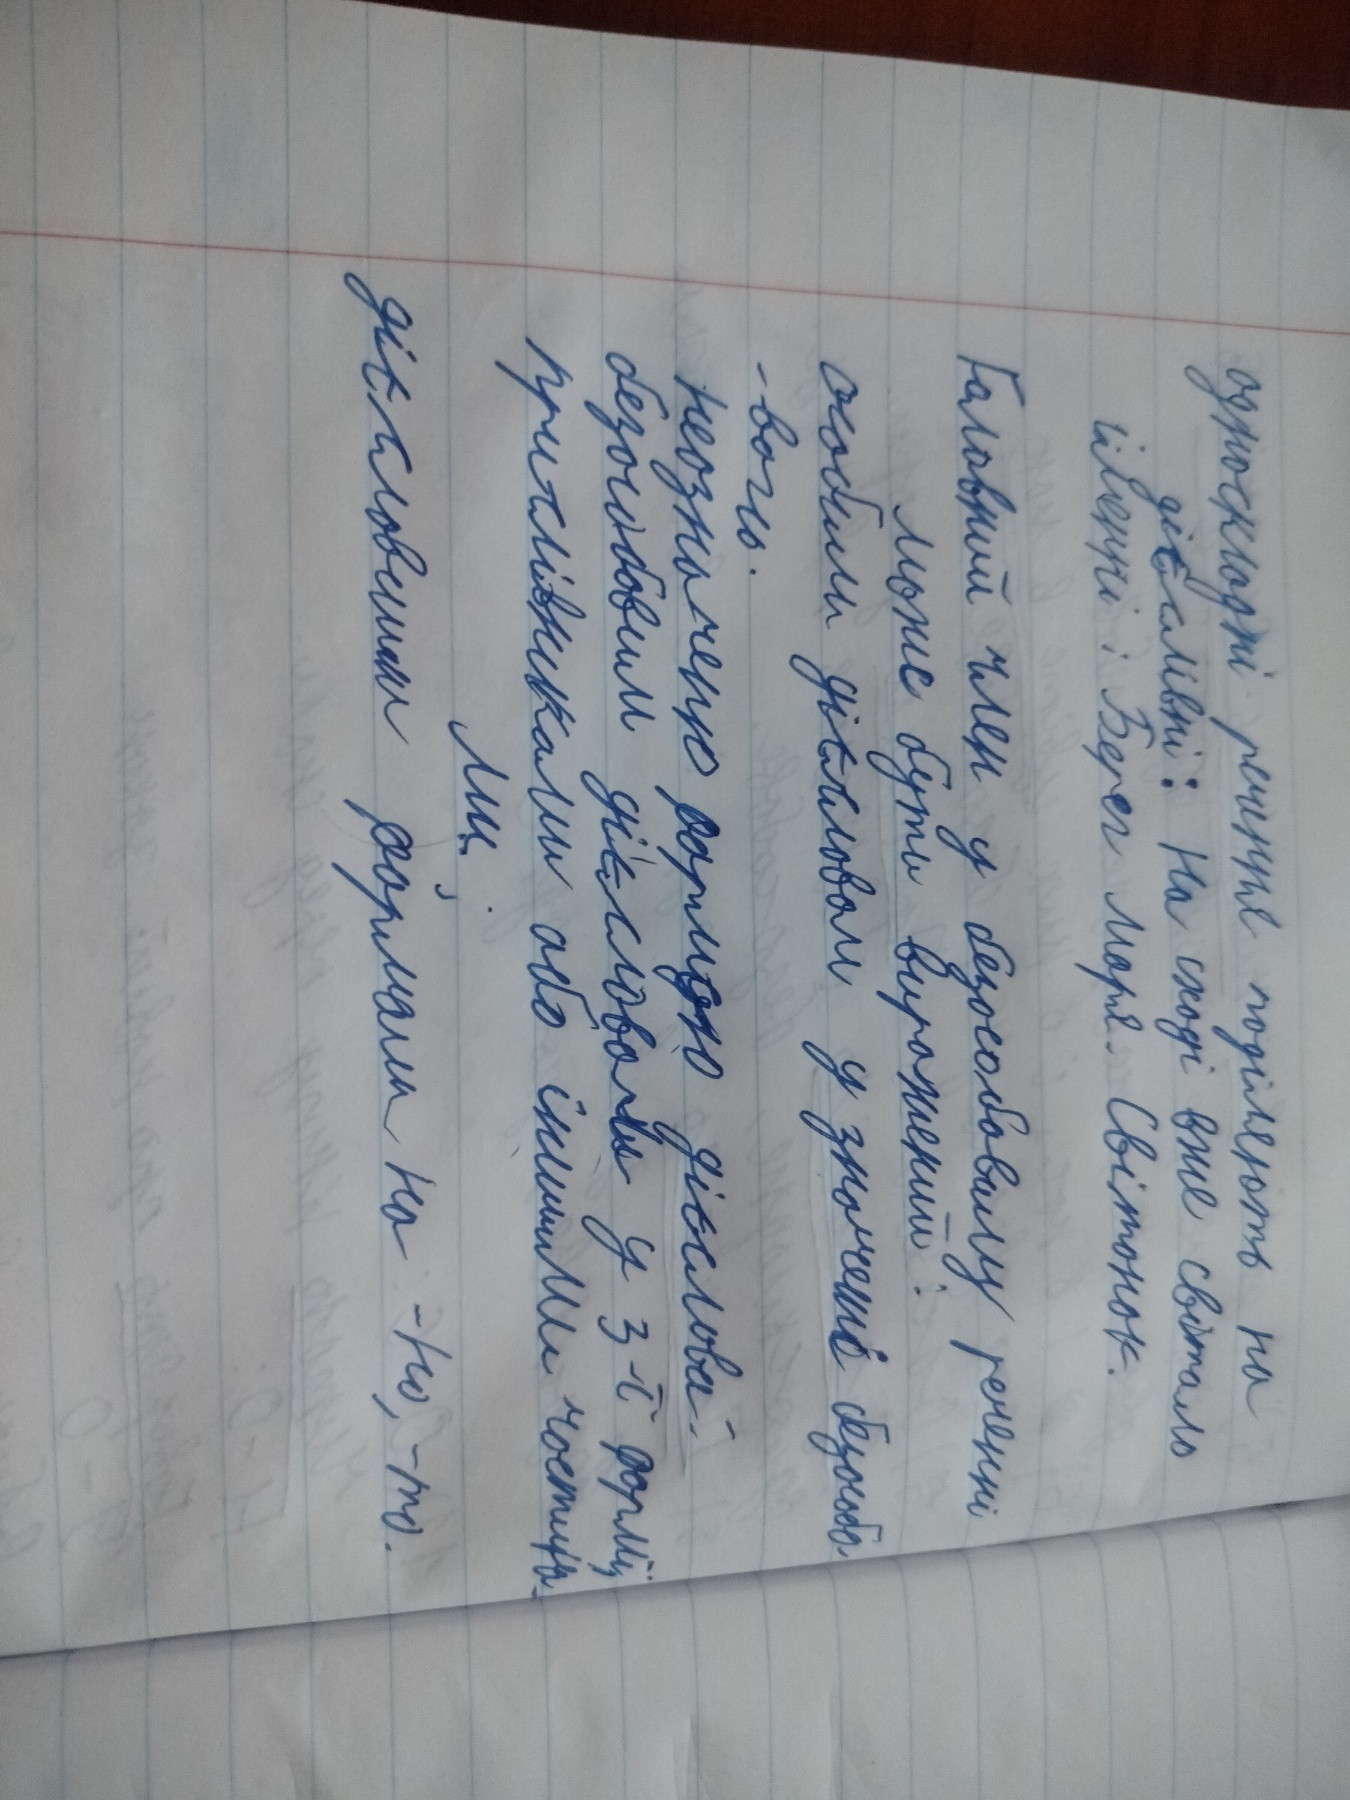 односкладні речення поділяють на
дієслівні: На сході вже світало
іменні : Берег моря. Світонок.
Головний член у безособовому реченні
може бути виражений:
особими дієсловом у значені безособо-
-вого.
неозначеню формою дієслова:
безособовим дієсловами у 3-ї формі,
прислівниками або іншими частина-
ми ;
дієсловними формами на -но, -то.